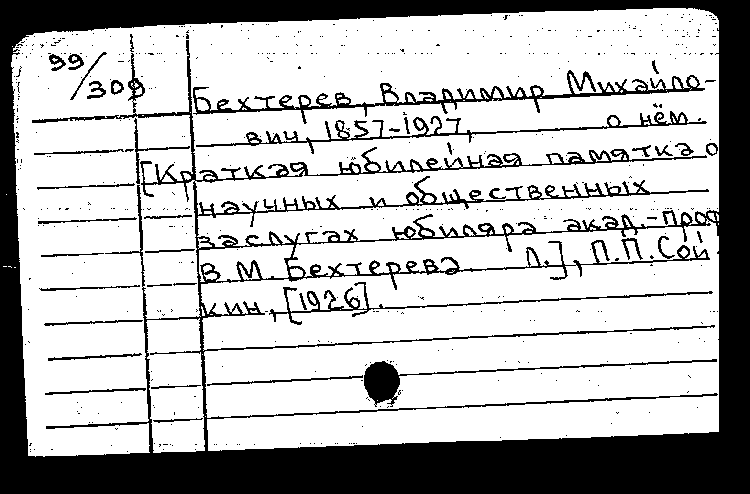 99/309
Бехтерев, Владимир Михайло-
вич, 1857-1927, о нём.
[Краткая юбилейная памятка о
научных и общественных
заслугах юбиляра акад.-проф
В.М. Бехтерева. Л.], П.П. Сой
кин, [1926].